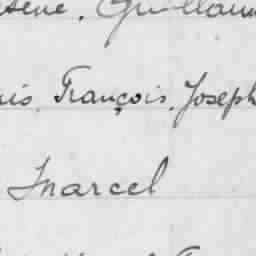 Guillaume
François, Joseph
Marcel